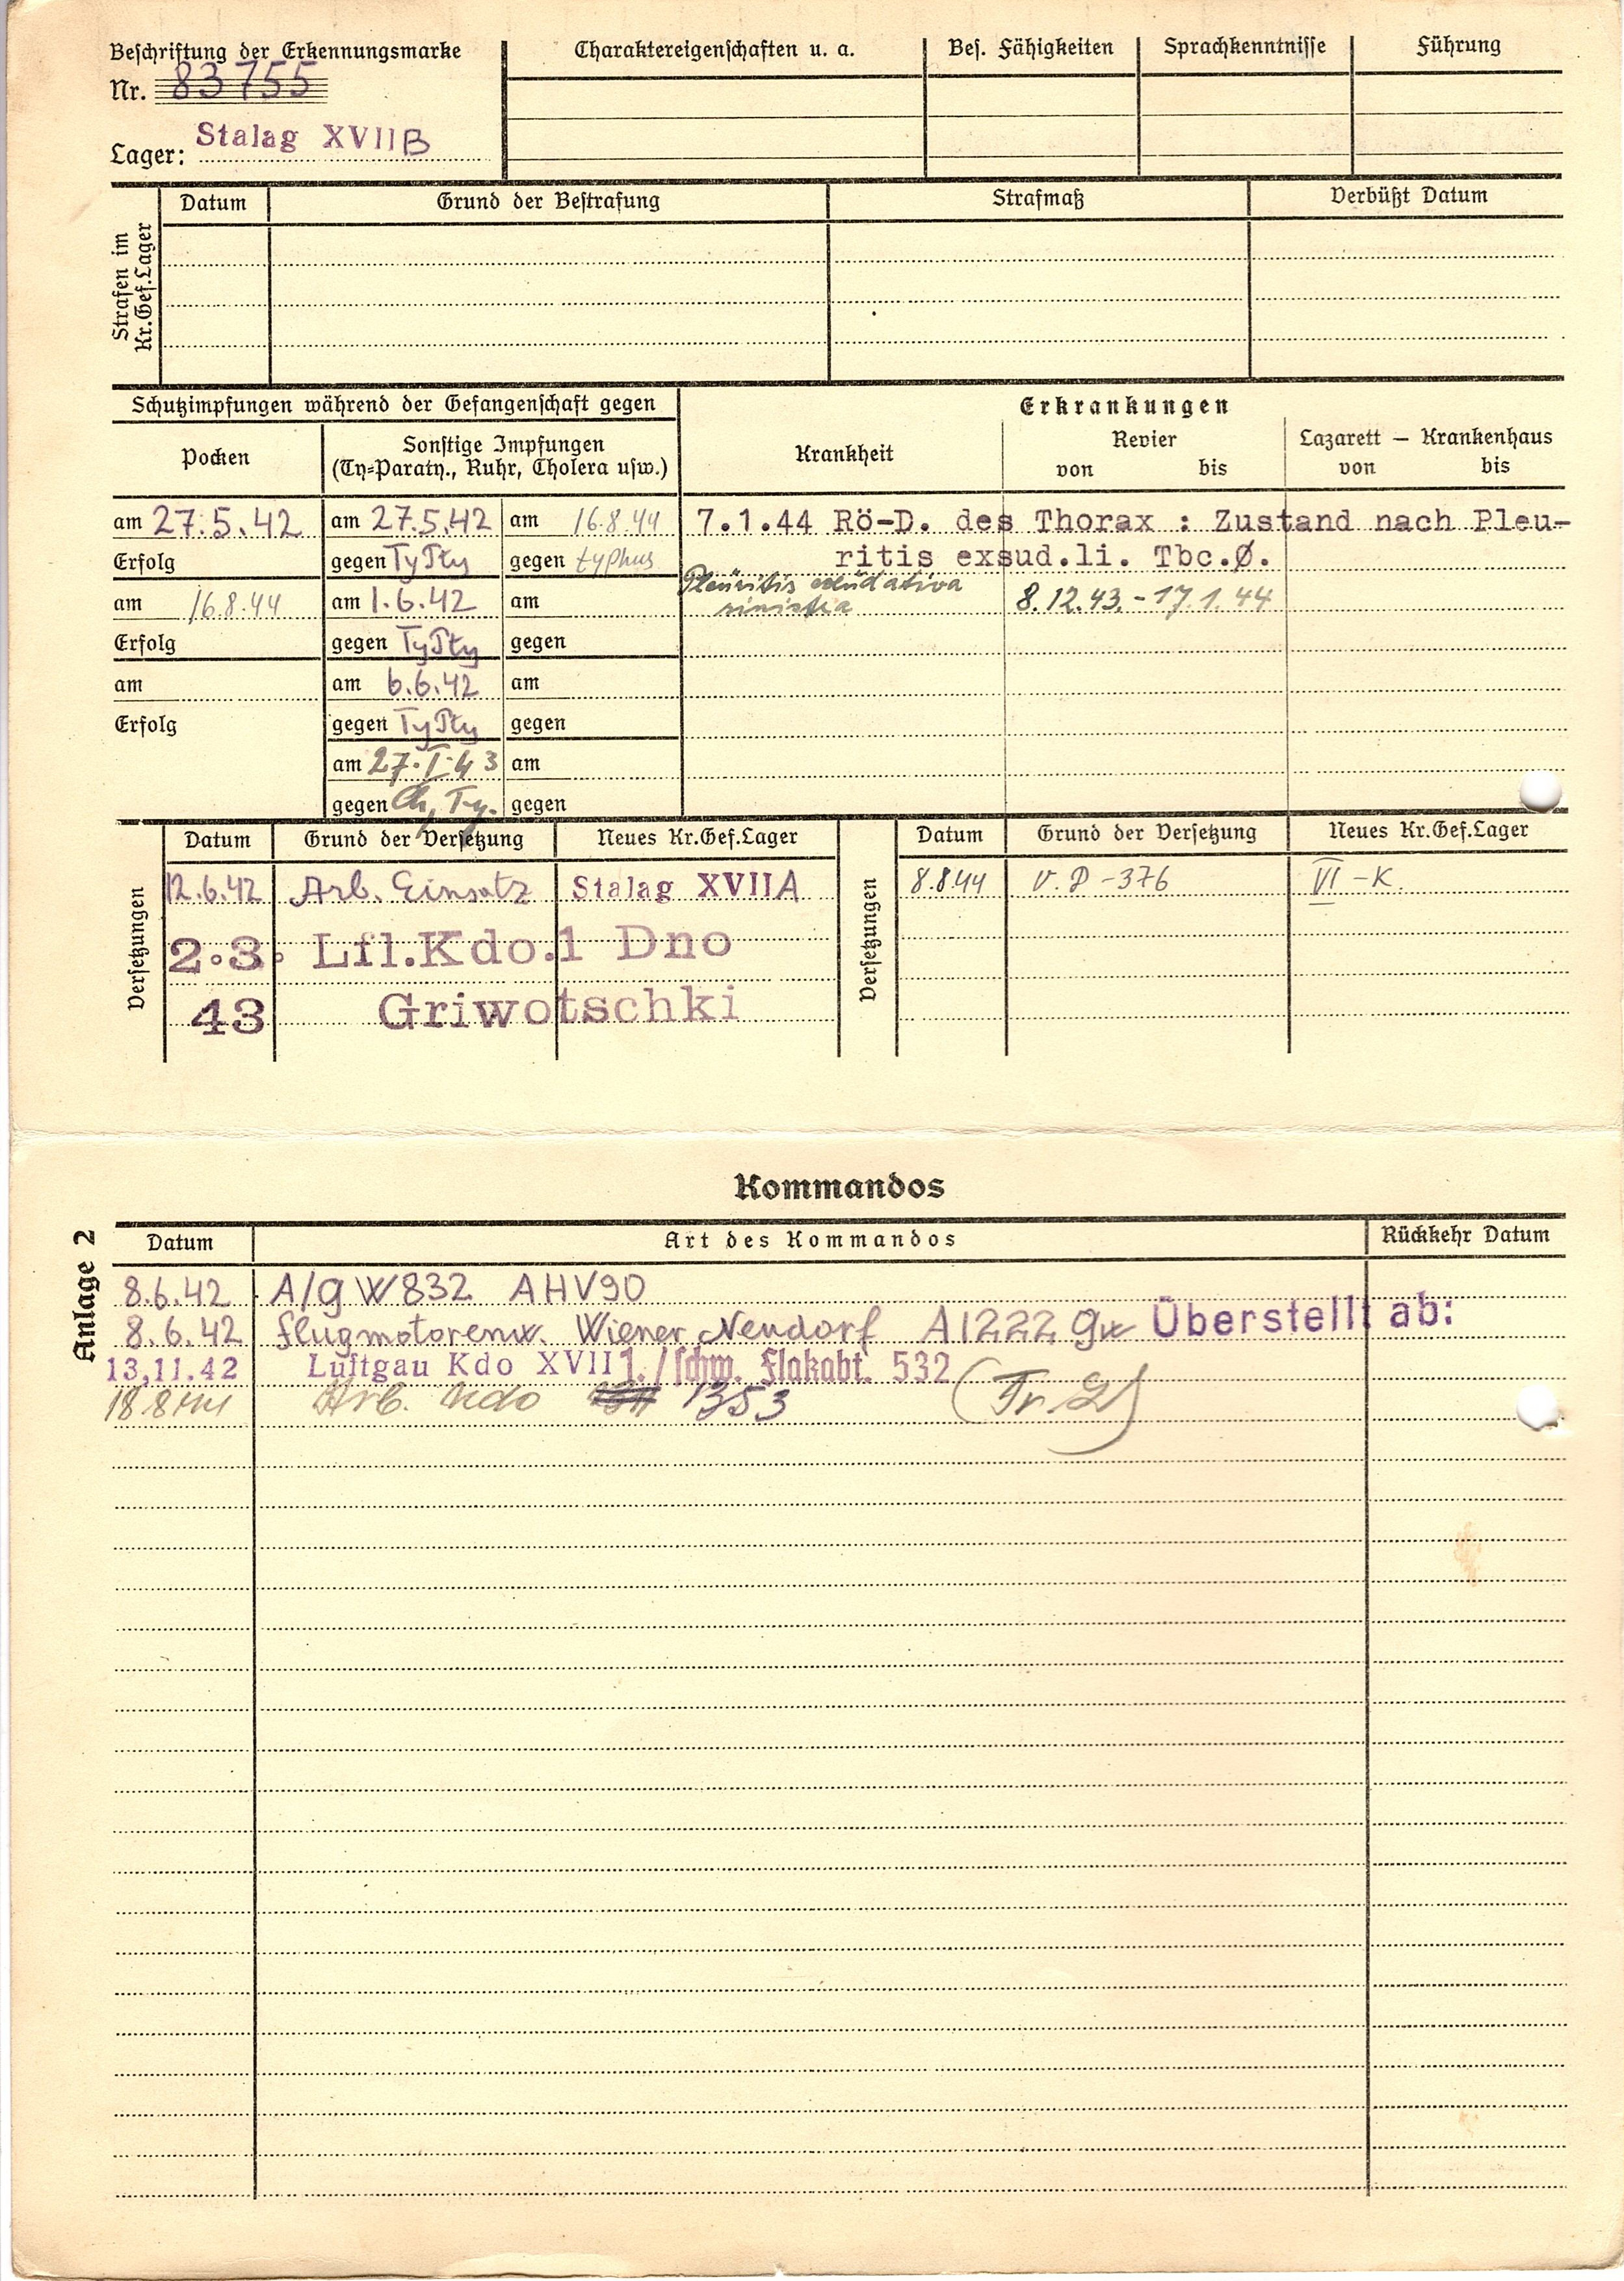 Beschriftung der Erkennungsmarke
Nr. 83755
Lager: Stalag XVIIB
Charaktereigenschaften u. a.
Bes. Fähigkeiten
Sprachkenntnisse
Führung
Strafen im
Kr.Gef.Lager
Datum
Grund der Bestrafung
Strafmaß
Verbüßt Datum
Schutzimpfungen während der Gefangenschaft gegen
Pocken
Sonstige Impfungen
(Ty=Paraty., Ruhr, Cholera usw.)
am 27.5.42 am 27.5.42 am 16.8.44
Erfolg gegen TyPty gegen typhus
am 16.8.44 am 1.6.42 am
Erfolg gegen TyPty gegen
am am 6.6.42 am
Erfolg gegen TyPty gegen
am 27.I.43 am
gegen Ch, Ty. gegen
Erkrankungen
Krankheit
Revier
von bis
Lazarett – Krankenhaus
von bis
7.1.44 Rö-D. des Thorax : Zustand nach Pleu-
ritis exsud.li. Tbc.Ø.
Pleuritis exudativa
sinistra 8.12.43.-17.1.44
Versetzungen
Datum Grund der Versetzung Neues Kr.Gef.Lager
12.6.42 Arb. Einsatz Stalag XVIIA
2.3. Lfl.Kdo.1 Dno
43 Griwotschki
Versetzungen
Datum Grund der Versetzung Neues Kr.Gef.Lager
8.8.44 V.P-376 VI-K.
Kommandos
Anlage 2
Datum Art des Kommandos Rückkehr Datum
8.6.42 A/g W832 AHV90
8.6.42 Flugmotorenw. Wiener Neudorf A1222 Gw Überstellt ab:
13,11.42 Luftgau Kdo XVII 1./schw. Flakabt. 532
18 8 44 Arb. Kdo 1353 (Tr. 2)